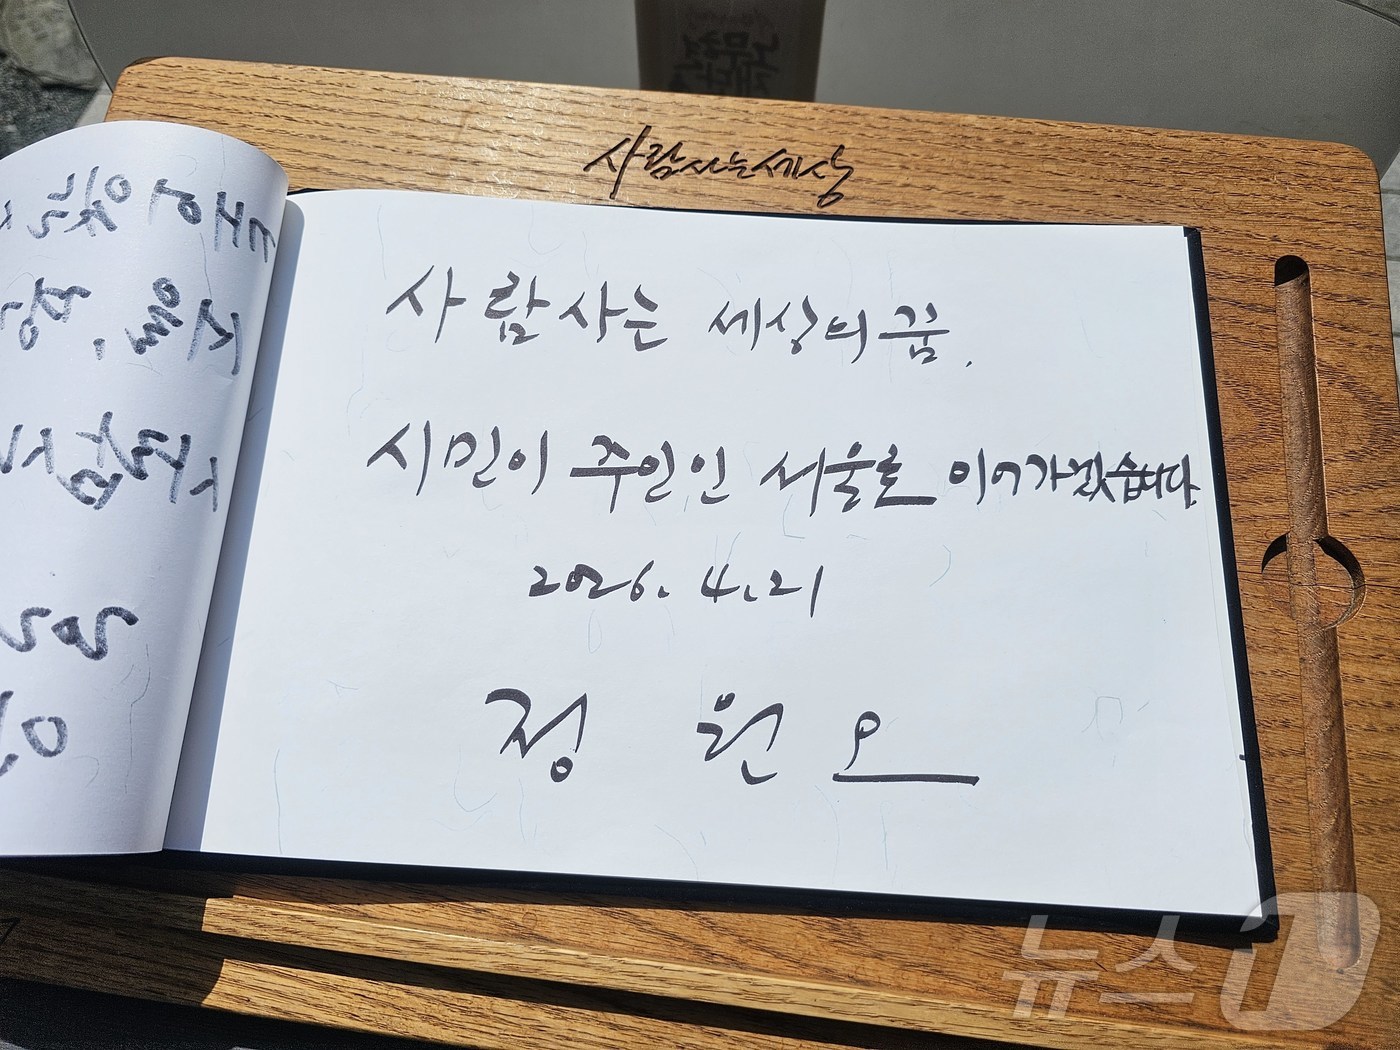 사람사는세상
사람 사는 세상의 꿈.
시민이 주인인 서울로 이어가겠습니다.
2026. 4. 21
정 원 오
뉴스1